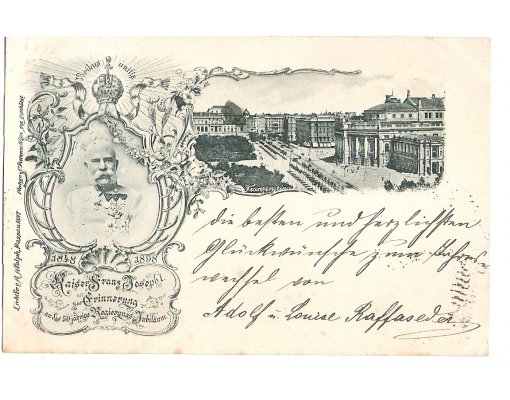 Viribus unitis
Franzensring
1848 1898
Kaiser Franz Joseph I.
Zur Erinnerung
an das 50 jährige Regierungs Jubiläum.
die besten und herzlichsten
Glückwünsche zum Jahres
wechsel von
Adolf u. Louise Raffaseder.